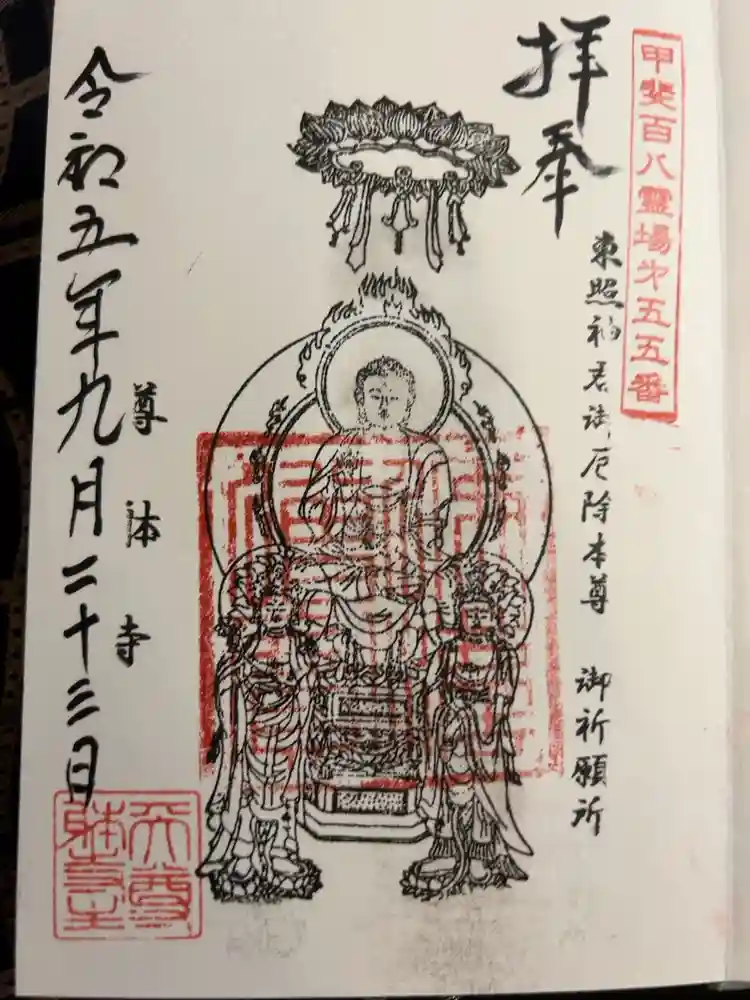 甲斐百八霊場第五五番
拝
奉
東照神君御厄除本尊 御祈願所
尊躰寺
令和五年九月二十三日